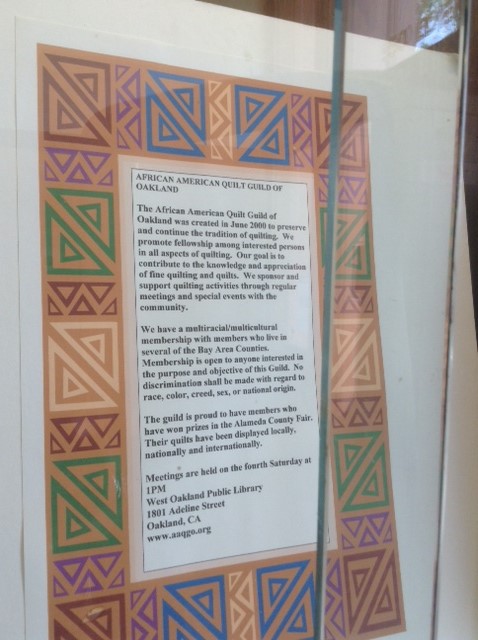 AFRICAN AMERICAN QUILT GUILD OF
OAKLAND
The African American Quilt Guild of
Oakland was created in June 2000 to preserve
and continue the tradition of quilting. We
promote fellowship among interested persons
in all aspects of quilting. Our goal is to
contribute to the knowledge and appreciation
of fine quilting and quilts. We sponsor and
support quilting activities through regular
meetings and special events with the
community.
We have a multiracial/multicultural
membership with members who live in
several of the Bay Area Counties.
Membership is open to anyone interested in
the purpose and objective of this Guild. No
discrimination shall be made with regard to
race, color, creed, sex, or national origin.
The guild is proud to have members who
have won prizes in the Alameda County Fair.
Their quilts have been displayed locally,
nationally and internationally.
Meetings are held on the fourth Saturday at
1PM
West Oakland Public Library
1801 Adeline Street
Oakland, CA
www.aaqgo.org